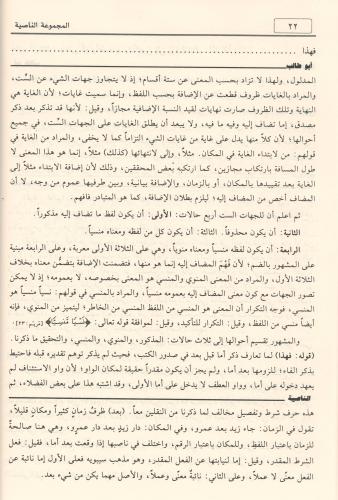 ٢٢
المجموعة الناصية
فهذا
أبو طالب
المدلول، ولهذا لا تزاد بحسب المعنى عن ستة أقسام؛ إذ لا يتجاوز جهات الشيء عن السِّت،
والمراد بالغايات ظروف قطعت عن الإضافة بحسب اللفظ، وإنما سميت غايات؛ لأن الغاية هي
النهاية وتلك الظروف صارت نهايات لقيد النسبة الإضافية مجازاً، وقيل: لأنها قد تذكر بعد ذكر
مصدق، إما تضاف إليه وفيه ما فيه، ولا يبعد أن يطلق الغايات على الجهات السِّت، في جميع
أحوالها؛ لأن كلاً منها يدل على غاية من غايات الشيء التزاماً كما لا يخفى، والمراد من الغاية في
قولهم: من لابتداء الغاية في المكان، مثلاً، وإلى لانتهائها (كذلك) مثلاً، إنما هو هذا المعنى لا
طول المسافة بارتكاب مجازين، كما ارتكبه بعض المحققين، وذلك لأن إضافة الابتداء مثلاً إلى
الغاية بعد تقييدها بالمكان، أو بالزمان، والإضافة بيانية، وبين طرفيها عموم من وجه، لا أن
المضاف أخص من المضاف إليه؛ ليلزم بطلان الإضافة، كما هو المتبادر فافهم.
ثم اعلم أن للجهات الست أربع حالات: الأولى: أن يكون لفظ ما تضاف إليه مذكوراً.
الثانية: أن يكون محذوفاً. الثالثة: أن يكون كل من لفظه ومعناه منسياً.
الرابعة: أن يكون لفظه منسياً ومعناه منوياً، وهي على الثلاثة الأولى معربة، وعلى الرابعة مبنية
على المشهور بالضم؛ لأن فهم المضاف إليه إنما هو منها، فتضمنت الإضافة بتضمن معناه بخلاف
الثلاثة الأول، والمراد من المعنى المنوي والمنسي هو خصوصه، لا بعمومه؛ إذ لا يمكن
تصور الجهات مع كون معنى المضاف إليه بعمومه منسياً، والمراد بالمنسي في قولهم: نسياً منسياً هو
المنسي، فوجه التكرار أن المنسي هو المنسي من اللفظ، المنسي من الخاطر؛ ليتميز من المنوي، فإنه
أيضاً منسي من اللفظ، وقيل: التكرار للتأكيد، وقيل: لموافقة قوله تعالى: ﴿نَسْيًا مَّنسِيًّا﴾ [مريم: ٢٣].
والمشهور تقسيم أحوالها إلى ثلاث حالات: المذكور، والمنوي، والمنسي، والتحقيق ما ذكرنا.
(قوله: فهذا) لما تعارف ذكر أما قبل بعد في صدور الكتب، فحيث لم يذكر توهم تقديره فاحتيط
بذكر الفاء؛ للزومها بعد أما، ولم يجز أن يكون مقدراً حقيقة لمكان الواو؛ لأن واو الاستئناف لم
يعهد دخوله على أما، وواو العطف لا يدخل على أما الأولى، وقد اشتبه هذا على بعض الفضلاء، ثم
الناصية
هذه حرف شرط وتفصيل مخالف لما ذكرنا من النقلين معاً. (بعد) ظرف زمان كثيراً ومكان قليلاً،
تقول في الزمان: جاء زيد بعد عمرو، وفي المكان: دار زيد بعد دار عمرو، وهي هنا صالحة
للزمان باعتبار اللفظ، وللمكان باعتبار الرقم، واختلف في ناصبها إذا وقعت بعد أما، فقيل: فعل
الشرط المقدر، وقيل: إما لنيابتها عن الفعل المقدر، وهو مذهب سيبويه فعلى الأول إما نائبة عن
الفعل معنًى لا عملاً، وعلى الثاني: نائبة معنًى وعملاً، والأصل مهما يكن من شيء بعد.